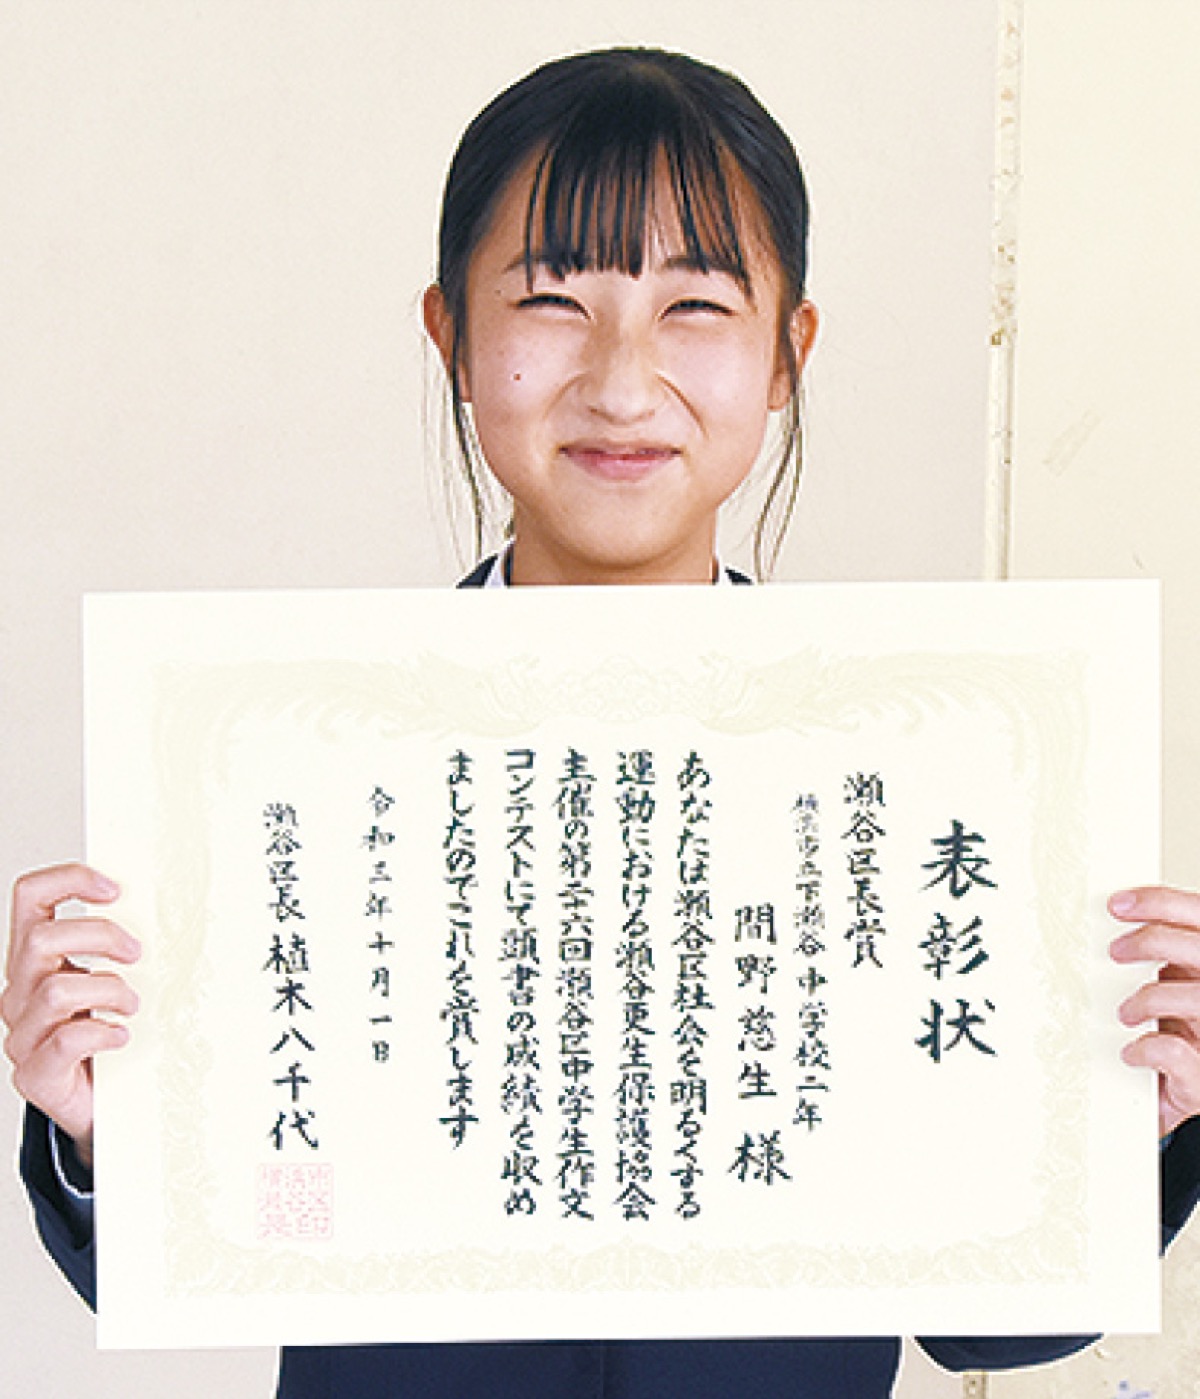 表彰状
瀬谷区長賞
横浜市立下瀬谷中学校二年
間野慈生 様
あなたは瀬谷区社会を明るくする
運動における瀬谷更生保護協会
主催の第二十六回瀬谷区中学生作文
コンテストにて頭書の成績を収め
ましたのでこれを賞します
令和三年十月一日
瀬谷区長 植木八千代